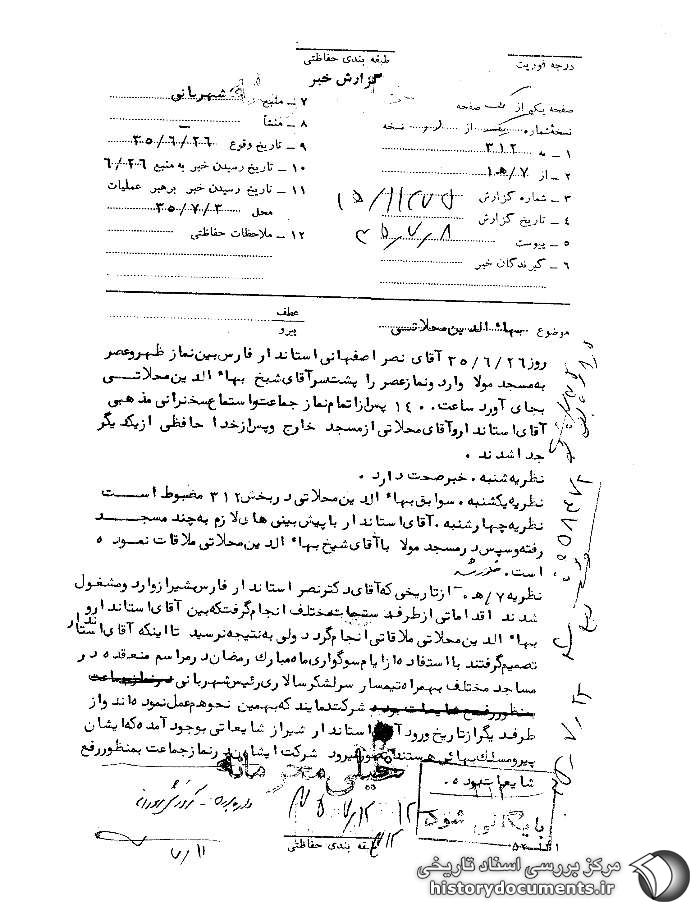 درجه فوریت
طبقه بندی حفاظتی
گزارش خبر
صفحه یکم از یک صفحه
نسخه‌شماره از نسخه
۱ ـ به ۳۱۲
۲ ـ از ۷/ﻫ
۳ ـ شماره گزارش
۴ ـ تاریخ گزارش ۳۵/۷/۸
۵ ـ پیوست
۶ ـ گیرندگان خبر
۷ ـ منبع شهربانی
۸ ـ منشأ
۹ ـ تاریخ وقوع ۳۵/۶/۲۶
۱۰ ـ تاریخ رسیدن خبر به منبع ۶/۲۶
۱۱ ـ تاریخ رسیدن خبر برهبر عملیات
محل ۳۵/۷/۳
۱۲ ـ ملاحظات حفاظتی
موضوع بهاء الدین محلاتی
عطف
پیرو
روز ۳۵/۶/۲۶ آقای نصر اصفهانی استاندار فارس بین نماز ظهر و عصر
به مسجد مولا وارد و نماز عصر را پشت سر آقای شیخ بهاء الدین محلاتی
بجای آورد ساعت ۱۴۰۰ پس از اتمام نماز جماعت و استماع سخنرانی مذهبی
آقای استاندار و آقای محلاتی از مسجد خارج و پس از خدا حافظی از یکدیگر
جدا شدند ۰
نظریه شنبه ۰ خبر صحت دارد ۰
نظریه یکشنبه ۰ سوابق بهاء الدین محلاتی در بخش ۳۱۲ مضبوط است
نظریه چهارشنبه ۰ آقای استاندار با پیش بینی های لازم به چند مسجد
رفته و سپس در مسجد مولا با آقای شیخ بهاء الدین محلاتی ملاقات نموده
است ۰
نظریه ۷/ﻫ ۰ از تاریخی که آقای دکتر نصر استاندار فارس بشیراز وارد و مشغول
شدند اقداماتی از طرف دستجات مختلف انجام گرفت که بین آقای استاندار و
بهاء الدین محلاتی ملاقاتی انجام گردد ولی به نتیجه نرسید تا اینکه آقای استاندار
تصمیم گرفتند با استفاده از ایام سوگواری ماه مبارک رمضان در مراسم منعقده در
مساجد مختلف بهمراه تیمسار سرلشکر سالاری رئیس شهربانی
شرکت نمایند که بهمین نحو هم عمل نموده اند و از
طرف دیگر از تاریخ ورود استاندار شیراز شایعاتی بوجود آمده که ایشان
پیرو مسلک بهائی هستند شرکت ایشان در نماز جماعت بمنظور رفع
شایعات بوده ۰
خیلی محرمانه
بایگانی شود
۷/۱۱
طبقه بندی حفاظتی
مرکز بررسی اسناد تاریخی
historydocuments.ir